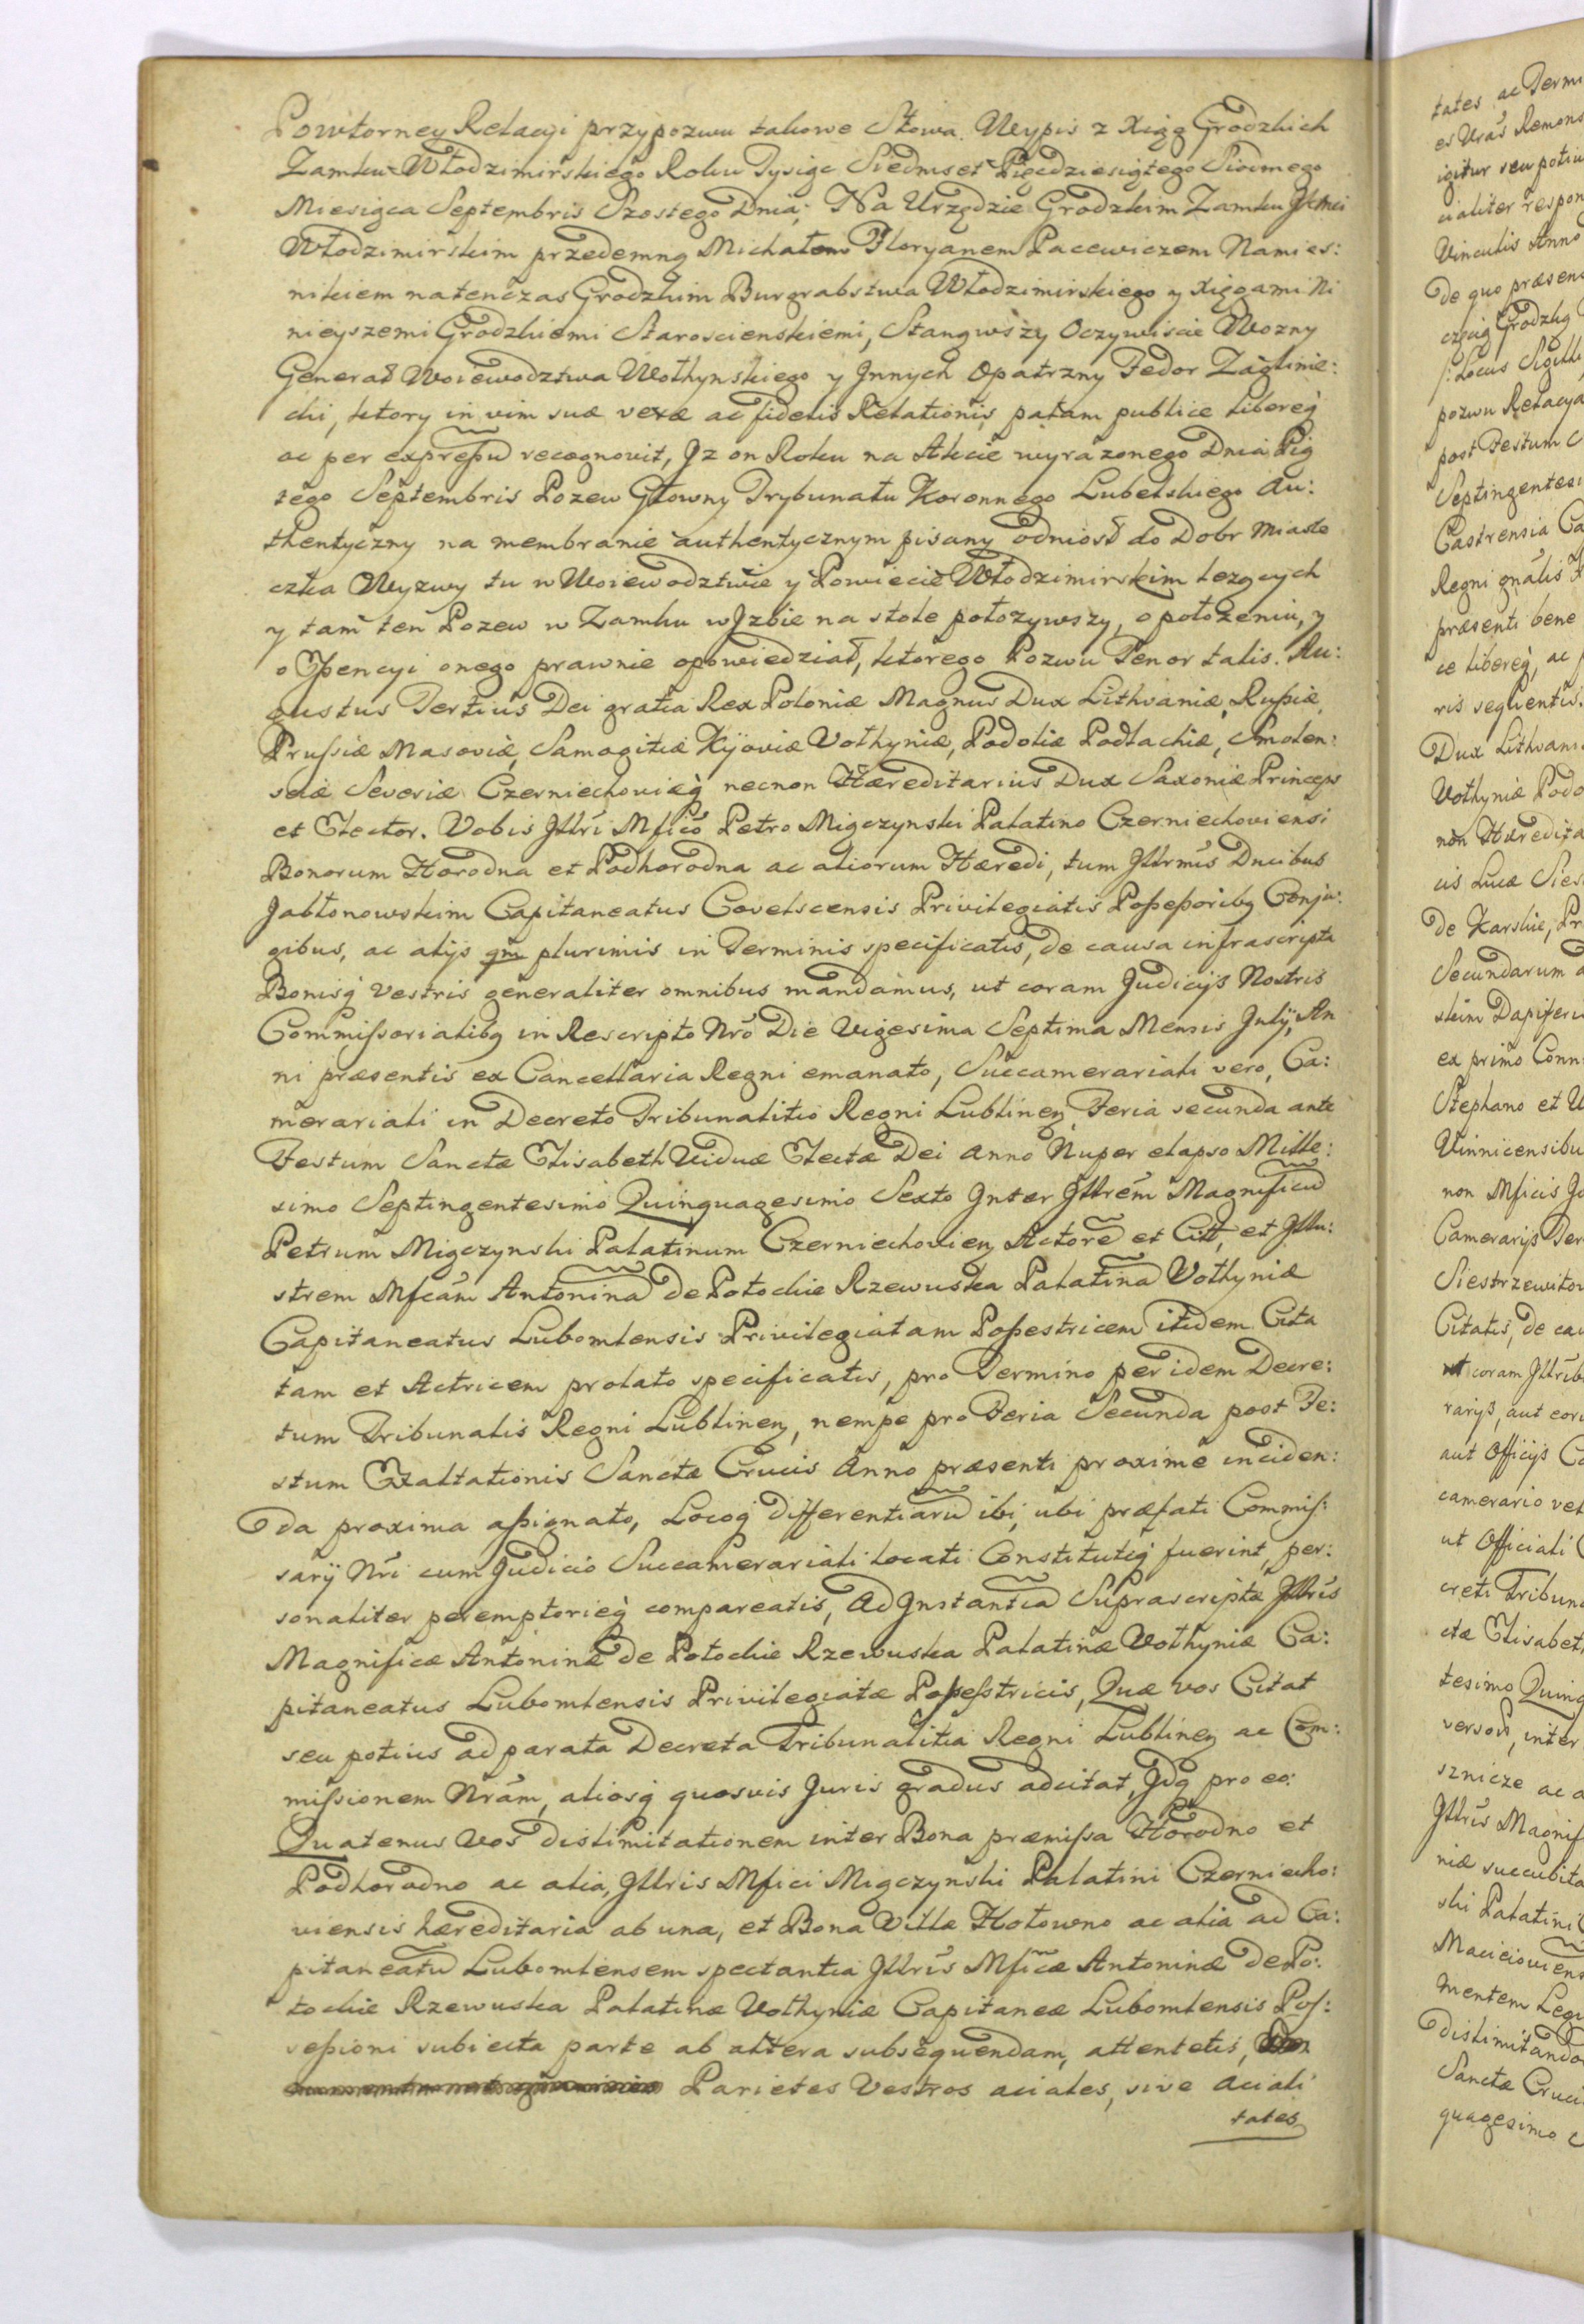 Powtorney Relacyi przypozwu takowe Słowa. Wypis z Xiąg Grodzkich
Zamku Włodzimirskiego Roku Tysiąc Siedmset Pięcdziesiątego Siodmego
Miesiąca Septembris Szostego Dnia; Na Urzędzie Grodzkim Zamku JKMci
Włodzimirskim przedemną Michałem Floryanem Pacewiczem Namies:
nikiem natenczas Grodzkim Burgrabstwa Włodzimirskiego y Xięgami Ni
nieyszemi Grodzkiemi Staroscienskiemi, Stanąwszy Oczywiscie Wozny
Generał Woiewodztwa Wołhynskiego y Jnnych Opatrzny Fedor Zaglinie:
cki, ktory in vim suæ veræ ac fidelis Relationis palam publice libereq̀
ac per expreßũ recognovit, Jz on Roku na Akcie wyrazonego Dnia Pią
tego Septembris Pozew Głowny Trybunału Koronnego Lubelskiego Au:
thentyczny na membranie authentycznym pisany odniosł do Dobr Miaste
czka Wyzwy tu w Woiewodztwie y Powiecie Włodzimirskim lezących
y tam ten Pozew w Zamku w Jzbie na stole połozywszy, o połozeniu, y
o Jßencyi onego prawnie opowiedział, ktorego Pozwu Tenor talis. Au:
gustus Tertius Dei gratia Rex Poloniæ Magnus Dux Lithvaniæ, Rußiæ,
Prußiæ Masoviæ, Samogitiæ Kÿoviæ Volhyniæ, Podoliæ Podlachiæ, Smolen:
sciæ Severiæ Czerniechoviæq̀ necnon Hæreditarius Dux Saxoniæ Princeps
et Elector. Vobis Jllrĩ Mficõ Petro Miączynski Palatino Czerniechoviensi
Bonorum Horodna et Podhorodna ac aliorum Hæredi, tum Jllrmĩs Ducibus
Jabłonowskim Capitaneatus Covelscensis Privilegiatis Poßeßoribq Conju:
gibus, ac alijs qm̃ plurimis in Terminis specificatis, de causa infrascripta
Bonisq̀ vestris generaliter omnibus mandamus, ut coram Judicijs Nostris
Commißorialibq in Rescripto Nrõ Die Vigesima Septima Mensis Julÿ, An
ni præsentis ex Cancellaria Regni emanato, Succamerariali vero, Ca:
merariali in Decreto Tribunalitio Regni Lublineñ Feria secunda ante
Festum Sanctæ Elisabeth Viduæ Electæ Dei Anno Nuper elapso Mille:
simo Septingentesimo Quinquagesimo Sexto Jnter Jllrẽm Magnificũ
Petrum Miączynski Palatinum Czerniechovieñ Actorẽ et Citt, et Jllu:
strem Mfcãm Antoninã de Potockie Rzewuska Palatinã Volhyniæ
Capitaneatus Lubomlensis Privilegiatam Poßestricem itidem Cita
tam et Actricem prolato specificatis, pro Termino per idem Decre:
tum Tribunalis Regni Lublineñ, nempe pro Feria Secunda post Fe:
stum Exaltationis Sanctæ Crucis Anno præsenti proxime inciden:
da proxima aßignato, Locoq̀ differentiarũ ibi, ubi præfati Commiß:
sarÿ Nrĩ cum Judicio Succamerariali locati Constitutiq̀ fuerint, per:
sonaliter peremptorieq̀ compareatis, Ad Jnstantiã Suprascriptæ Jllrĩs
Magnificæ Antoninæ de Potockie Rzewuska Palatinæ Volhyniæ Ca:
pitaneatus Lubomlensis Privilegiatæ Poßeßtricis, Quæ vos Citat
seu potius ad parata Decreta Tribunalitia Regni Lublineñ ac Com:
mißionem Nrãm, aliosq̀ quosvis Juris gradus adcitat, Jdq̀ pro eo:
Quatenus Vos dislimitationem inter Bona præmißa Horodno et
Podhorodno ac alia, Jllris Mfici Miączynski Palatini Czerniecho:
viensis hæreditaria ab una, et Bona Villæ Hołowno ac alia ad Ca:
pitaneatũ Lubomlensem spectantia Jllrĩs Mficæ Antoninæ de Po:
tockie Rzewuska Palatinæ Volhyniæ Capitaneæ Lubomlensis Poß:
seßioni subiecta parte ab altera subsequendam, attentetis,
Parietes Vestros aciales, sive Aciali
tates

tates ac Termi
es Vrãs Remons
igitur seu potiu
cialiter respon
Vinculis Anno
De quo præsens
częcią Grodzką
/: Locus Sigilli
pozwu Relacya
post Festum C
Septingentesi
Castrensia Ca
Regni gnãlis
præsenti bene
ce libereq̀, ac p
ris sequentis.
Dux Lithvani
Volhyniæ Podo
non Hæredita
cis Lucæ Sies
de Karskie, Pr
Secundarum a
skim Dapiferi
ex primo Conn
Stephano et U
Vinnicensibu
non Mficis Jo
Camerarijs Ter
Siestrzewitow
Citatis, de cau
ut coram Jllrib
rarijs, aut eoru
aut Officijs Ca
camerario vel
ut Officiali C
creti Tribuna
ctæ Elisabet
tesimo Quinq
versos, inter
sznicze ac a
Jllrĩs Magnif
niæ succubita
ski Palatini C
Macieioviens
mentem Legu
dislimitando
Sanctæ Cruci
quagesimo